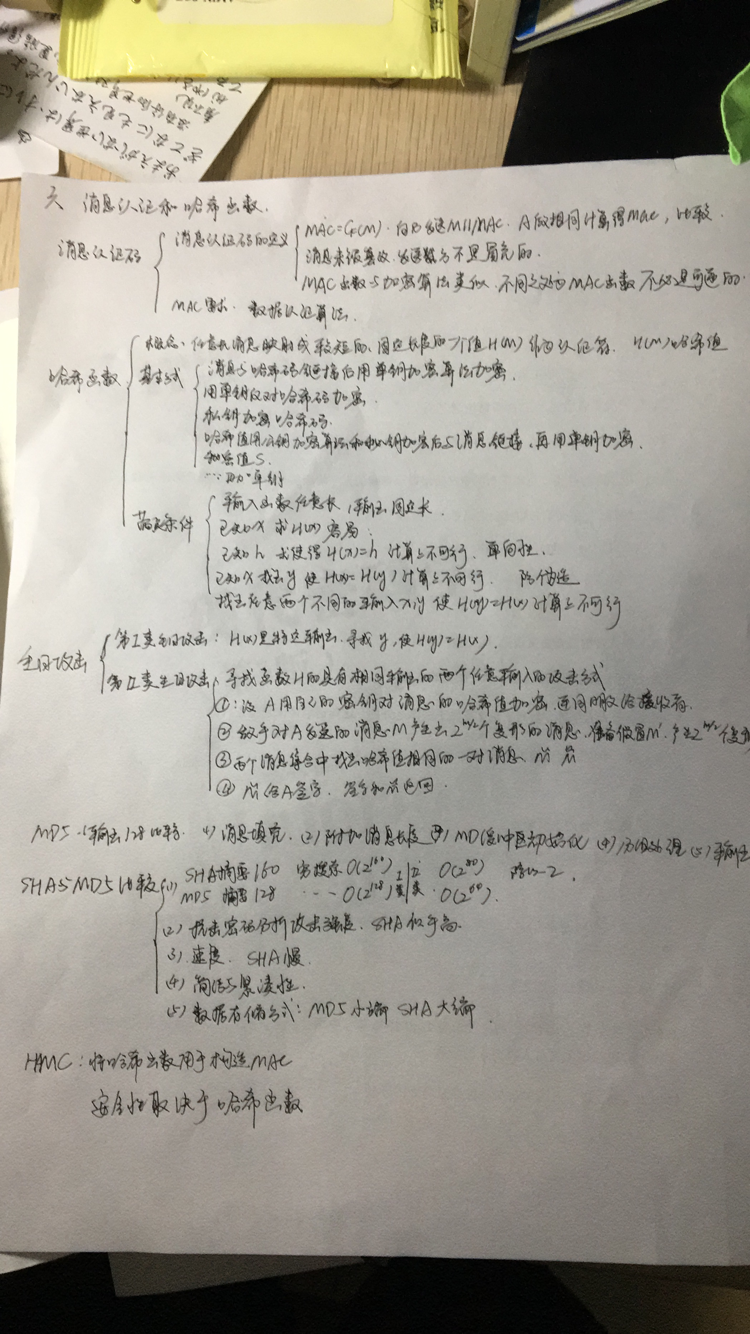 六 消息认证和哈希函数.
消息认证码
消息认证码的定义
MAC=Ck(M). 向B发送M||MAC. 收相同计算得MAC, 比较.
消息未被篡改. 发送数方不是冒充的.
MAC函数与加密算法类似. 不同之处为MAC函数不必是可逆的.
MAC要求. 数据认证算法.
哈希函数
概念: 任意长消息映射成较短的、固定长度的一个值H(M) 作为认证符. H(M)哈希值
基本方式
消息与哈希码链接后用单钥加密算法加密.
用单钥仅对哈希码加密.
私钥加密哈希码.
哈希值用公钥加密算法和私钥加密后与消息链接, 再用单钥加密.
和密值S.
单钥
满足条件
输入函数任意长, 输出固定长.
已知x 求H(x)容易.
已知h 求使得H(x)=h 计算上不可行. 单向性.
已知x 找出y 使H(x)=H(y)计算上不可行.
找出任意两个不同的输入x,y 使H(y)=H(x)计算上不可行
生日攻击
第I类生日攻击: H(x)是特定输出. 寻找y, 使H(y)=H(x).
第II类生日攻击: 寻找函数H的具有相同输出的两个任意输入的攻击方式
①: 设A用自己的密钥对消息的哈希值加密. 连同明文给接收者.
② 敌手对A发送的消息M产生出2^m/2个变形的消息. 准备假冒M'. 产生2^m/2个变形
③ 两个消息集合中找出哈希值相同的一对消息.
④ 给A签字. 签字和 返回.
MD5 输出128比特 (1)消息填充. (2)附加消息长度 (3)MD缓冲区初始化 (4)分组处理 (5)输出
SHA与MD5比较
(1) SHA摘要160 穷搜索O(2^160) I类 II类 O(2^80)
MD5 摘要128 ---- O(2^128) O(2^60).
(2) 抗击密码分析攻击强度. SHA似乎高.
(3). 速度. SHA慢.
(4) 简洁与紧凑性.
(5) 数据存储方式: MD5小端 SHA大端.
HMC: 将哈希函数用于构造MAC
安全性取决于哈希函数